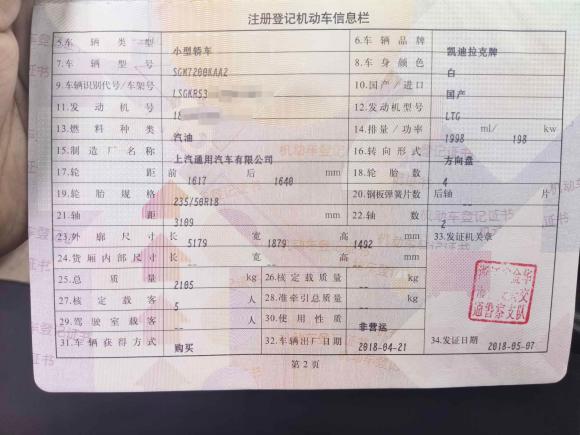 注册登记机动车信息栏
5.车辆类型 小型轿车 6.车辆品牌 凯迪拉克牌
7.车辆型号 SGM7200KAA2 8.车身颜色 白
9.车辆识别代号/车架号 LSGKR53 10.国产/进口 国产
11.发动机号 12.发动机型号 LTG
13.燃料种类 汽油 14.排量/功率 1998 ml/ 198 kw
15.制造厂名称 上汽通用汽车有限公司 16.转向形式 方向盘
17.轮距 前 1617 后 1640 mm 18.轮胎数 4
19.轮胎规格 235/50R18 20.钢板弹簧片数 后轴 -- 片
21.轴距 3109 mm 22.轴数 2
23.外廓尺寸 长 5179 宽 1879 高 1492 mm 33.发证机关章
24.货厢内部尺寸 长 -- 宽 -- 高 -- mm
25.总质量 2105 kg 26.核定载质量 -- kg
27.核定载客 5 人 28.准牵引总质量 -- kg
29.驾驶室载客 -- 人 30.使用性质 非营运
31.车辆获得方式 购买 32.车辆出厂日期 2018-04-21 34.发证日期 2018-05-07
第2页